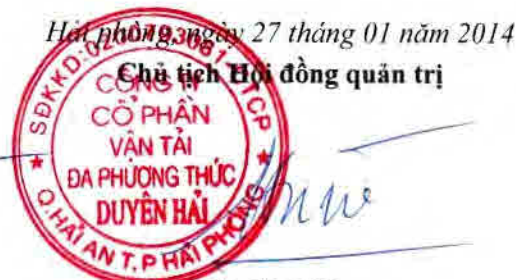 Hải phòng, ngày 27 tháng 01 năm 2014
Chủ tịch Hội đồng quản trị
CÔNG TY
CỔ PHẦN
VẬN TẢI
ĐA PHƯƠNG THỨC
DUYÊN HẢI
Q. HẢI AN T.P HẢI PHÒNG